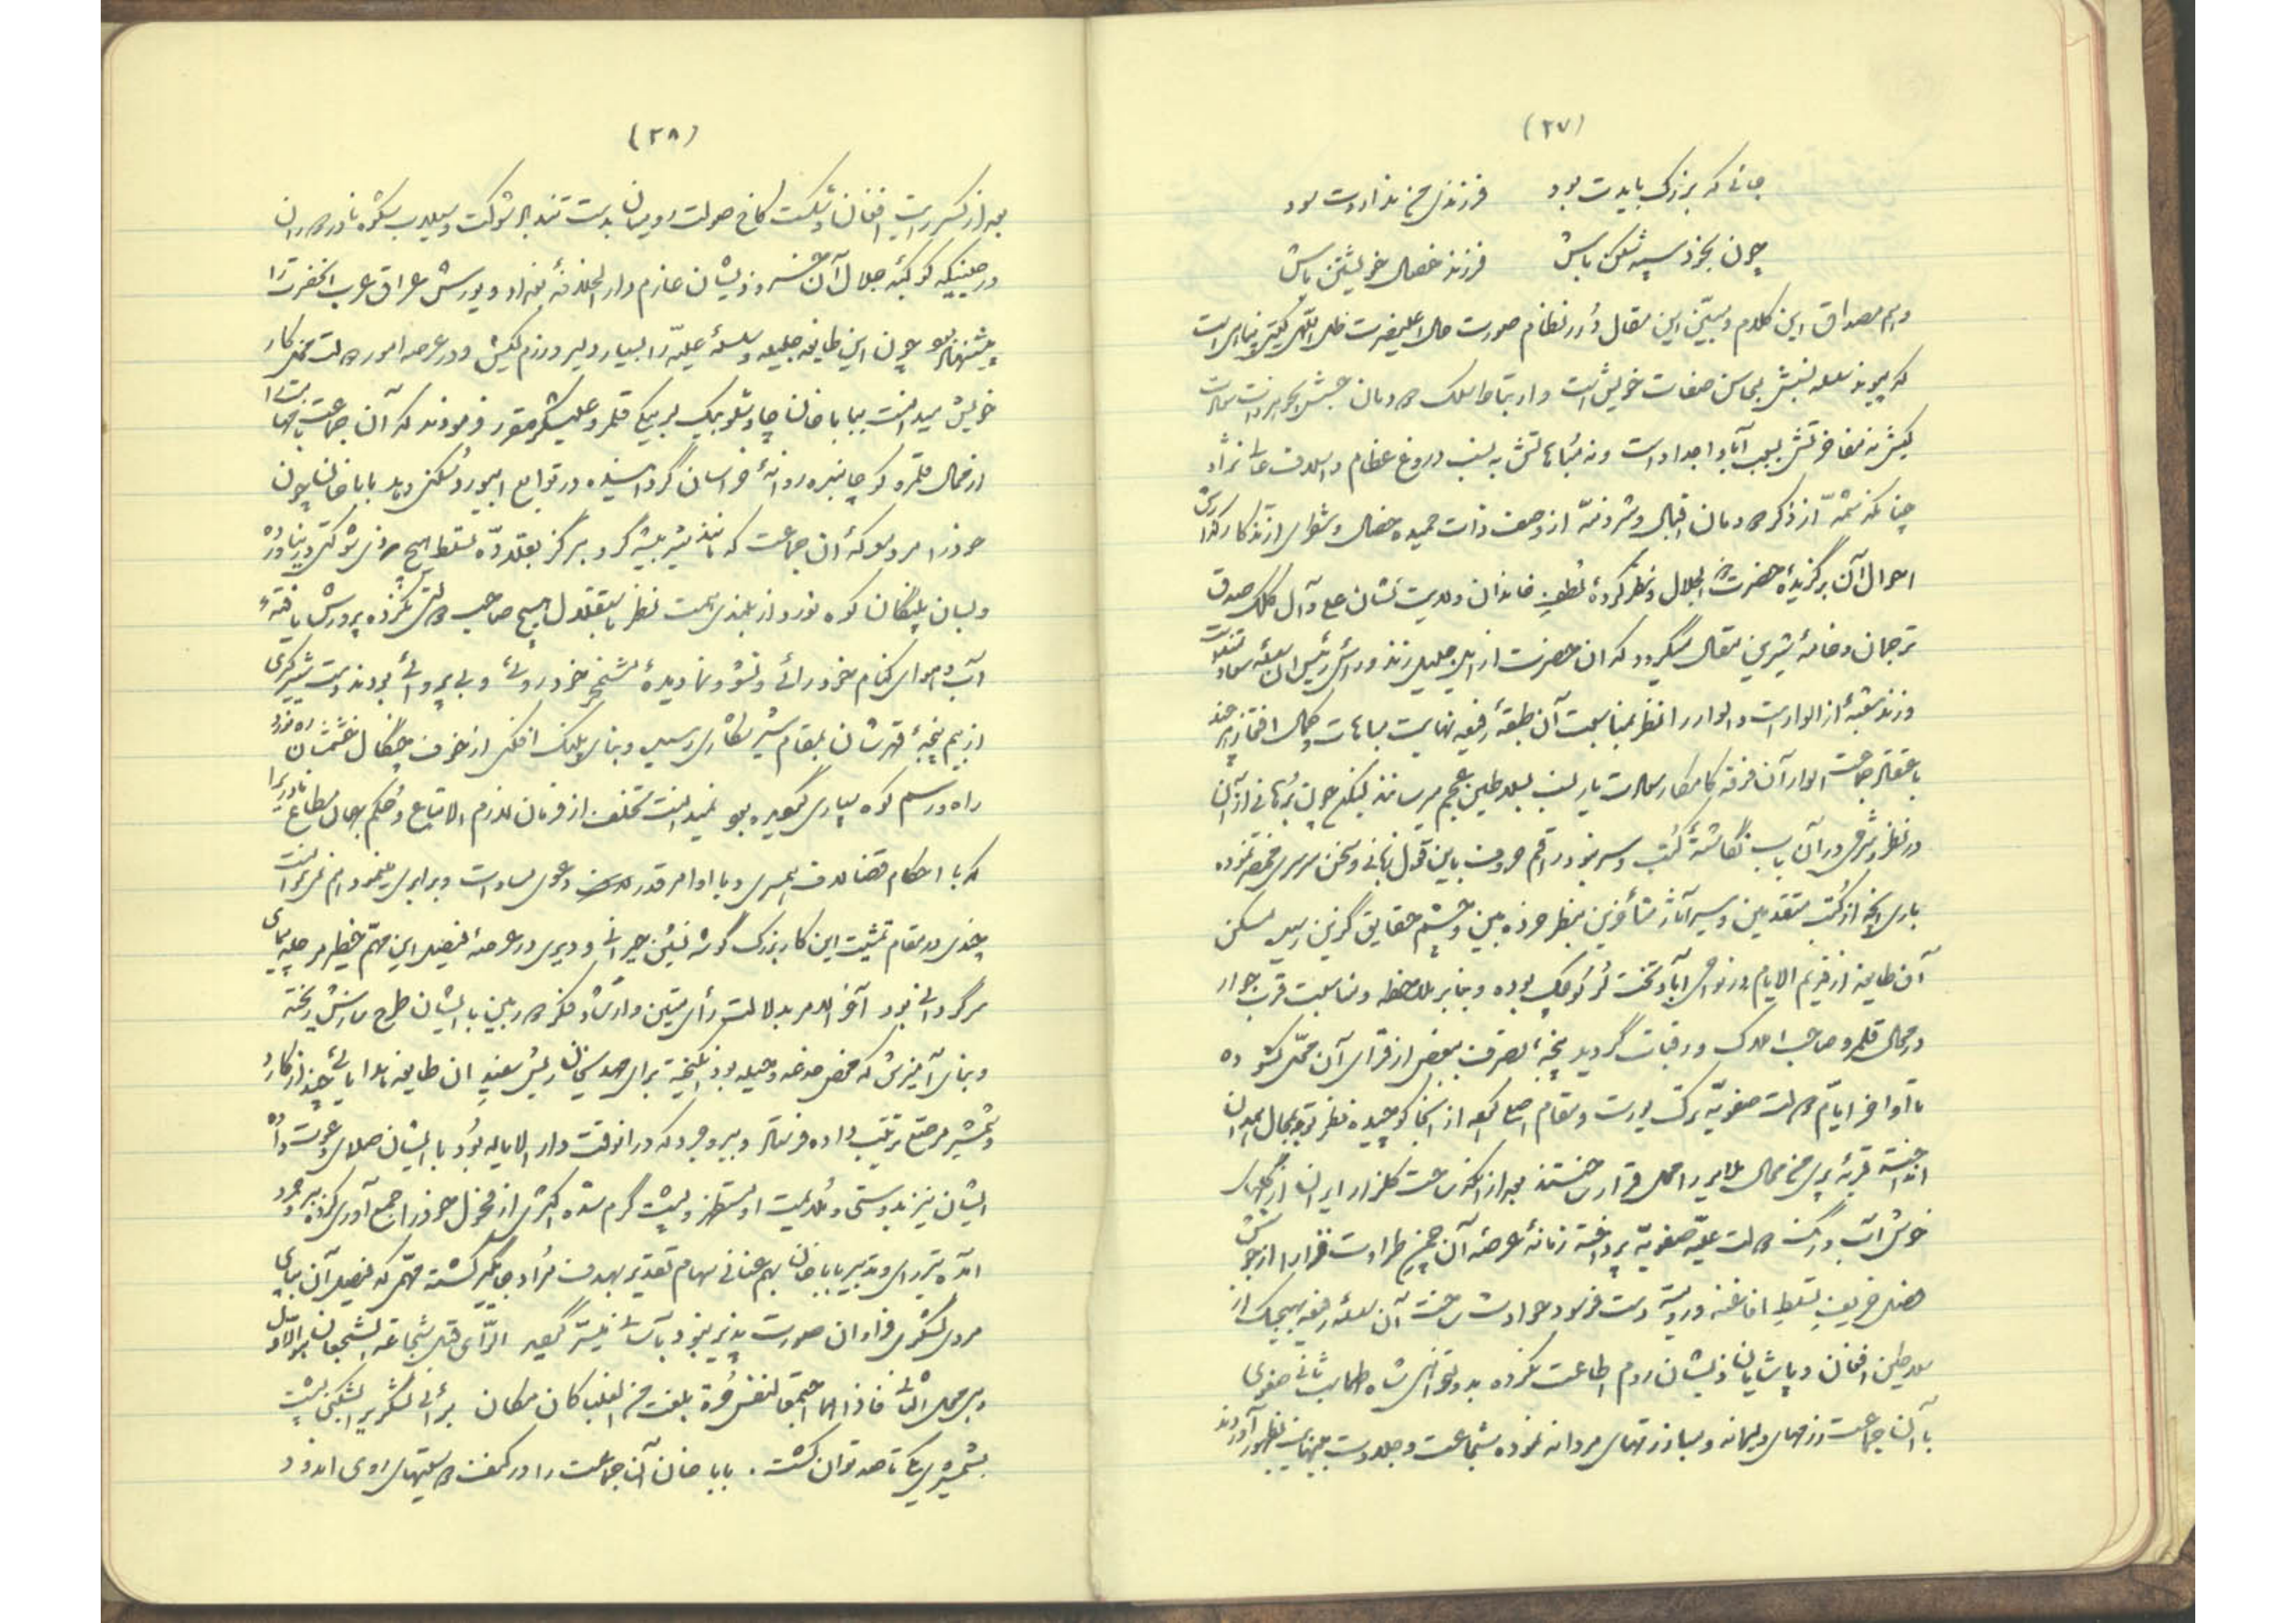 (۲۷)
جائی که بزرگ بایدت بود فرزندی من نداردت سود
چون بخود سپه شکن باش فرزند خصال خویشتن باش
و هم مصداق این کلام و مبیّن این مقال دُرر نظام صورت حال اعلیحضرت ظل اللهی گیتی پناهی است
که پیوند سلسله نسبش بمحاسن صفات خویش است و ارتباط سلک دودمان
کیش نه مفاخرتش بسبب آباء و اجداد است و نه مُباهاتش به نسب دروغ عظام و اسلاف عالی نژاد
چنانکه شمّهٔ از ذکر دودمان اقبال و شرذمهٔ از وصف ذات حمیده خصال
احوال آن برگزیدهٔ حضرت ذوالجلال و نظر کردهٔ لُطف خاندان ولایت نشان علی و آل کلک صدق
ترجمان و خامهٔ شیرین مقال میگردد که آن حضرت از ایل جلیل زند و رأس رئیس آن سلسله
و زند شعبهٔ از الوار است و الوار را نظر بمناسبت آن طبقهٔ رفیعه نهایت مباهات و کمال افتخار هر چند
باعتقاد جماعت الوار آن فرقهٔ کامکار نسب بسلاطین عجم میرسانند لیکن چون بُرهانی از آن
در نظر و شرحی در آن باب نگاشتهٔ کُتب و سیر نبود راقم حروف باین قول زبانی و سخن سرسری مختصر نموده
باری آنچه از کُتب متقدمین و سیر آثار متأخرین بنظر خرده بین و چشم حقایق گزین رسید مسکن
آن طایفه از قدیم الایام در نواحی آباد تخت لُر کوچک بوده و بنابر ملاحظه و مناسبت قرب جوار
در محال قلمرو صاحب املاک و رقبات گردید پنجهٔ تصرف ببعضی از قرای آن محال گشوده
تا اواخر ایّام دولت صفویّه برک یورت و مقام اصلی کرده از آنجا کوچیده نظر توجه بمحال
انداخته قریهٔ پری من محال ملایر را محل قرار ساختند بعد از آنکه ساحت گلزار ایران از گلهای
خوش آب و رنگ دولت علیّه صفویّه پرداخته زمانهٔ عرصهٔ آن چمن طراوت قرار را از جوشش
فصل خریف تسلط افاغنه و رومیه دست فرسود حوادث ساخت آن سلسله رفیعه بهیچیک از
سلاطین افغان و پاشایان ذیشان روم اطاعت نکرده بدولتخواهی شاه طهماسب ثانی صفوی
با آن جماعت رزمهای دلیرانه و مبارزتهای مردانه نموده شجاعت و جلادت بینهایت بظهور آوردند
(۲۸)
بعد از کسر رایت افغان و شکست کاخ صولت رومیان بدست تندباد شوکت و سیلاب شکوه نادر دوران
در حینیکه کوکبهٔ جلال آن خسرو ذیشان عازم دارالخلافهٔ بغداد و یورش عراق عرب آنحضرت را
پیشنهاد بود چون این طایفه جلیله و سلسلهٔ علیّه را بسیار دلیر و رزم کیش و در عرصه امور دولت مخلّ کار
خویش میدانست بباباخان چاوشلو بیگ لربیگی قلمرو علیشکر مقرر فرمودند که آن جماعت را
از محال قلمرو کوچانیده روانهٔ خراسان گردانیده در توابع ابیورد مسکن دهد باباخان چون
خود را مرد معرکهٔ آن جماعت که مانند شیر بیشه گرد هرگز بقلادهٔ تسلط هیچ ذی شوکتی در نیاورده
و بسان پلنگان کوه نورد از بلندی همت نظر باستقلال هیچ صاحب دولتی نکرده پرورش یافتهٔ
آب و هوای کنام خودرائی و نشو و نما دیدهٔ شخ خودروئی و بی پروائی بودند دست شیر گیری
از بیم پنجهٔ قهرشان بمقام شیر شکاری رسید و بنای پلنگ افکنی از خوف چنگال خشمشان
راه و رسم کوه سپاری گیرد و نمیدانست تخلف از فرمان لازم الاتباع و حکم جهان مطاع نادری را
که با احکام قضا لاف همسری و با اوامر قدر دعوی مساوات و برابری مینمود هم نمیتوانست
چندی در مقام تمشیت این کار بزرگ گوشه نشین حیرانی و دیری در عرصهٔ فیصل این مهمّ خطیر مرحله پیمای
سرگردانی بود آخر الامر بدلالت رأی متین و ارشاد فکر دوربین با ایشان طرح سازش ریخته
و بنای آمیزش که محض خدعه و حیله بود انگیخته برای مهدیخان رئیس سفید آن طایفه هدایائی چند از کارد
و شمشیر مرصّع ترتیب داده فرستاد و ببروجرد که در آنوقت دارالایاله بود با ایشان صلای دعوت داد
ایشان نیز بدوستی و ملایمت او مستظهر و پشت گرم شده اکثری از فحول خود را جمع آوری کرده ببروجرد
آمده تیر رای و تدبیر باباخان بهم عنانی سهام تقدیر بهدف مُراد جایگیر گشته مهمّی که فیصل آن بپای
مردی لشگری فراوان صورت پذیر نبود بآسانی میسّر گردید الرّأی قبل شجاعة الشجعان هو اوّل
وهی المحل الثانی فاذا هما اجتمعا لنفس مُرة بلغت من العلیاء کل مکان برأئی لشگری را بشکنی پشت
بشمشیری یکی تا صد توان کشت. باباخان آن جماعت را در کنف دوستیهای روی اندود